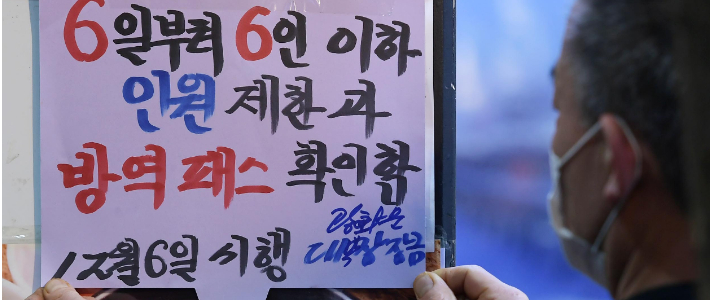 6일부터 6인 이하
인원 제한과
방역패스 확인함
12월 6일 시행
광화문
대박장금